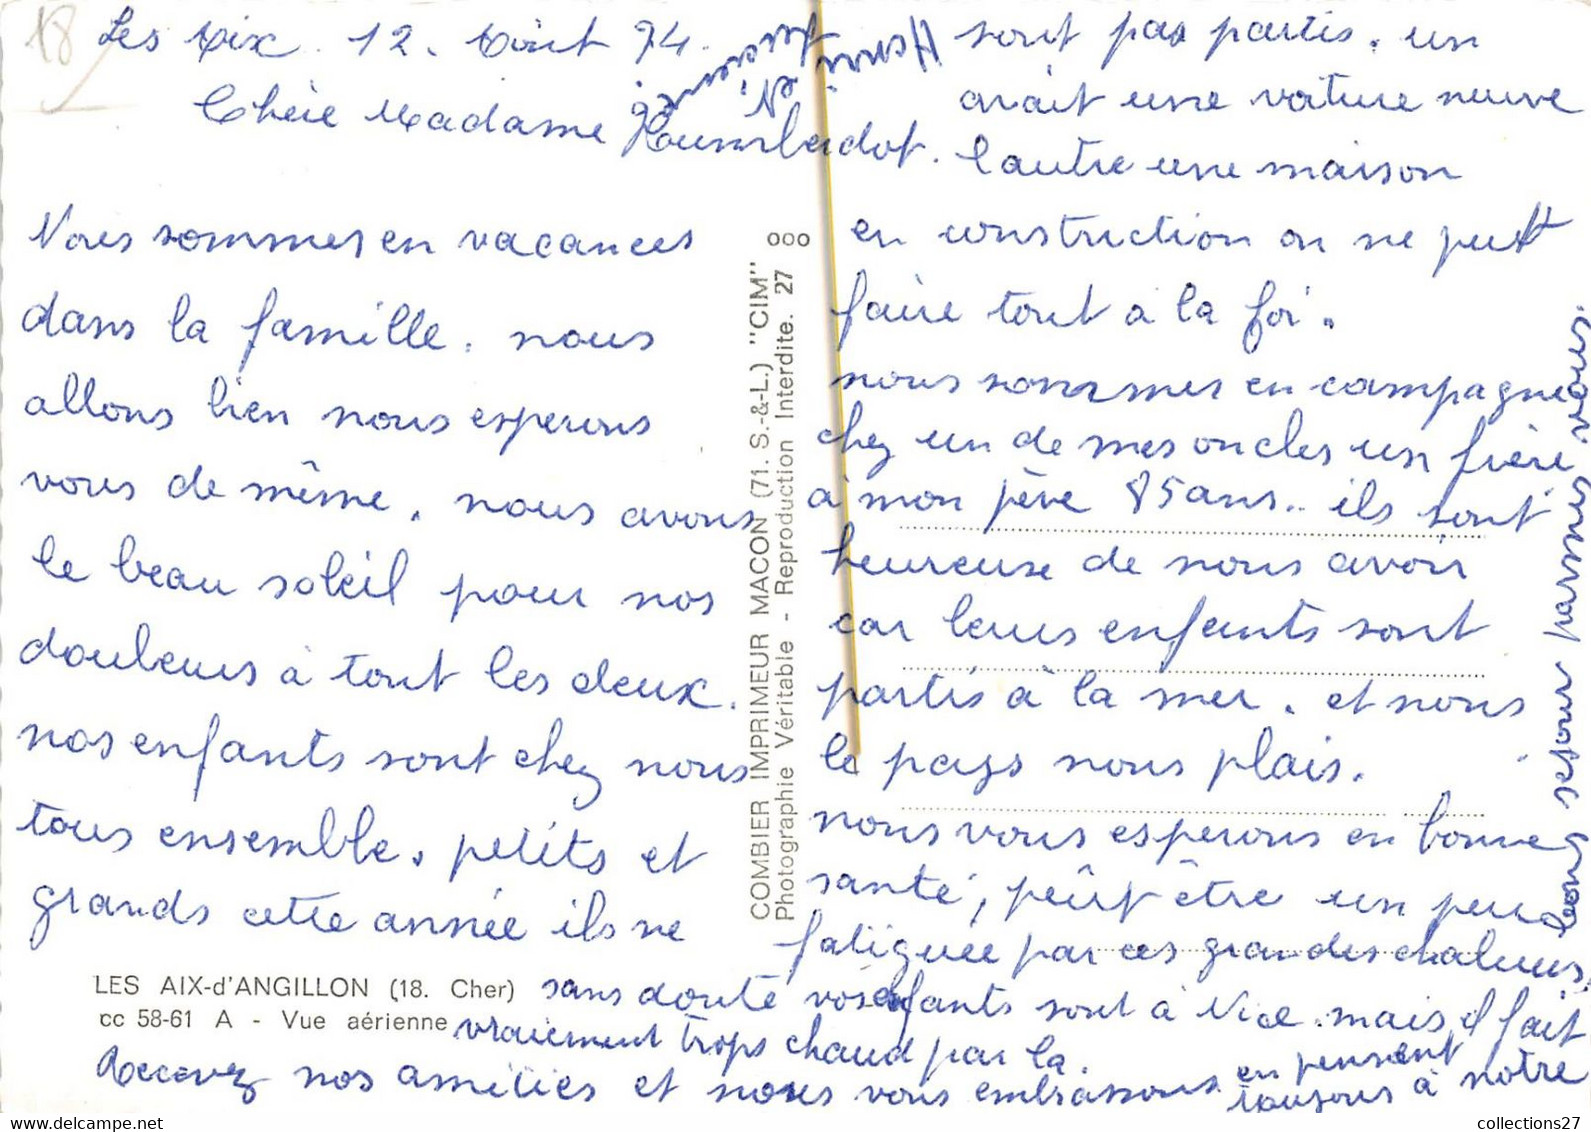 18
Les Aix. 12. Août 74.
Chère Madame
Nous sommes en vacances
dans la famille. nous
allons bien nous esperons
vous de même. nous avons
le beau soleil pour nos
douleurs à tout les deux.
nos enfants sont chez nous
tous ensemble. petits et
grands cette année ils ne
sont pas partis. un
avait une voiture neuve
l'autre une maison
en construction on ne peut
faire tout à la foi.
nous sommes en campagne
chez un de mes oncles un frère
à mon père 85 ans.. ils sont
heureuse de nous avoir
car leurs enfants sont
partis à la mer. et nous
le pays nous plais.
nous vous esperons en bonne
santé, peût être un peu
fatiguée par ces grandes chaleurs.
sans doute vos enfants sont à Nice. mais il fait
vraiement trops chaud par la.
Recevez nos amitiés et nous vous embrassons.
en pensent
toujours à notre
long séjour parmis vous.
Henri et
COMBIER IMPRIMEUR MACON (71. S.-&-L.) "CIM"
Photographie Véritable - Reproduction Interdite. 27 000
LES AIX-d'ANGILLON (18. Cher)
cc 58-61 A - Vue aérienne
collections27